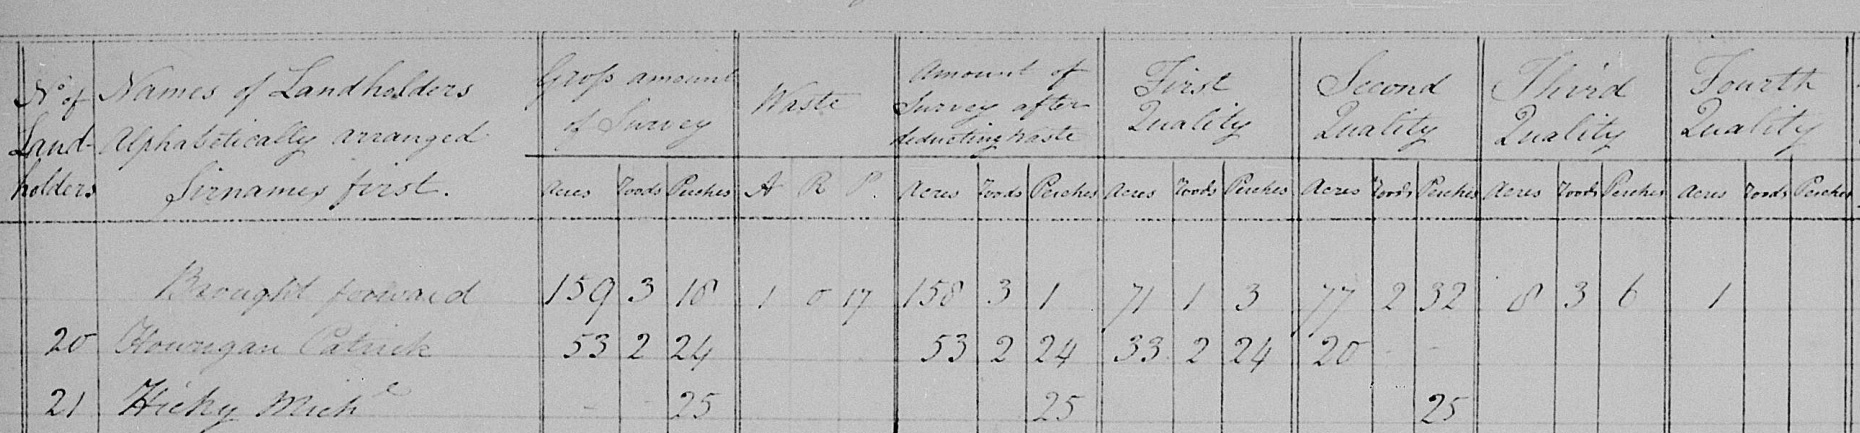 No of Land-holders
Names of Landholders Alphabetically arranged Sirnames first.
Gross amount of Survey
Waste
Amount of Survey after deducting waste
First Quality
Second Quality
Third Quality
Fourth Quality
Acres roods Perches A R P. Acres roods Perches Acres roods Perches Acres roods Perches Acres roods Perches Acres roods Perches
Brought forward 159 3 18 1 0 17 158 3 1 71 1 3 77 2 32 8 3 6 1
20 Hourigan Patrick 53 2 24 53 2 24 33 2 24 20 - -
21 Hicky Michl - - 25 25 25